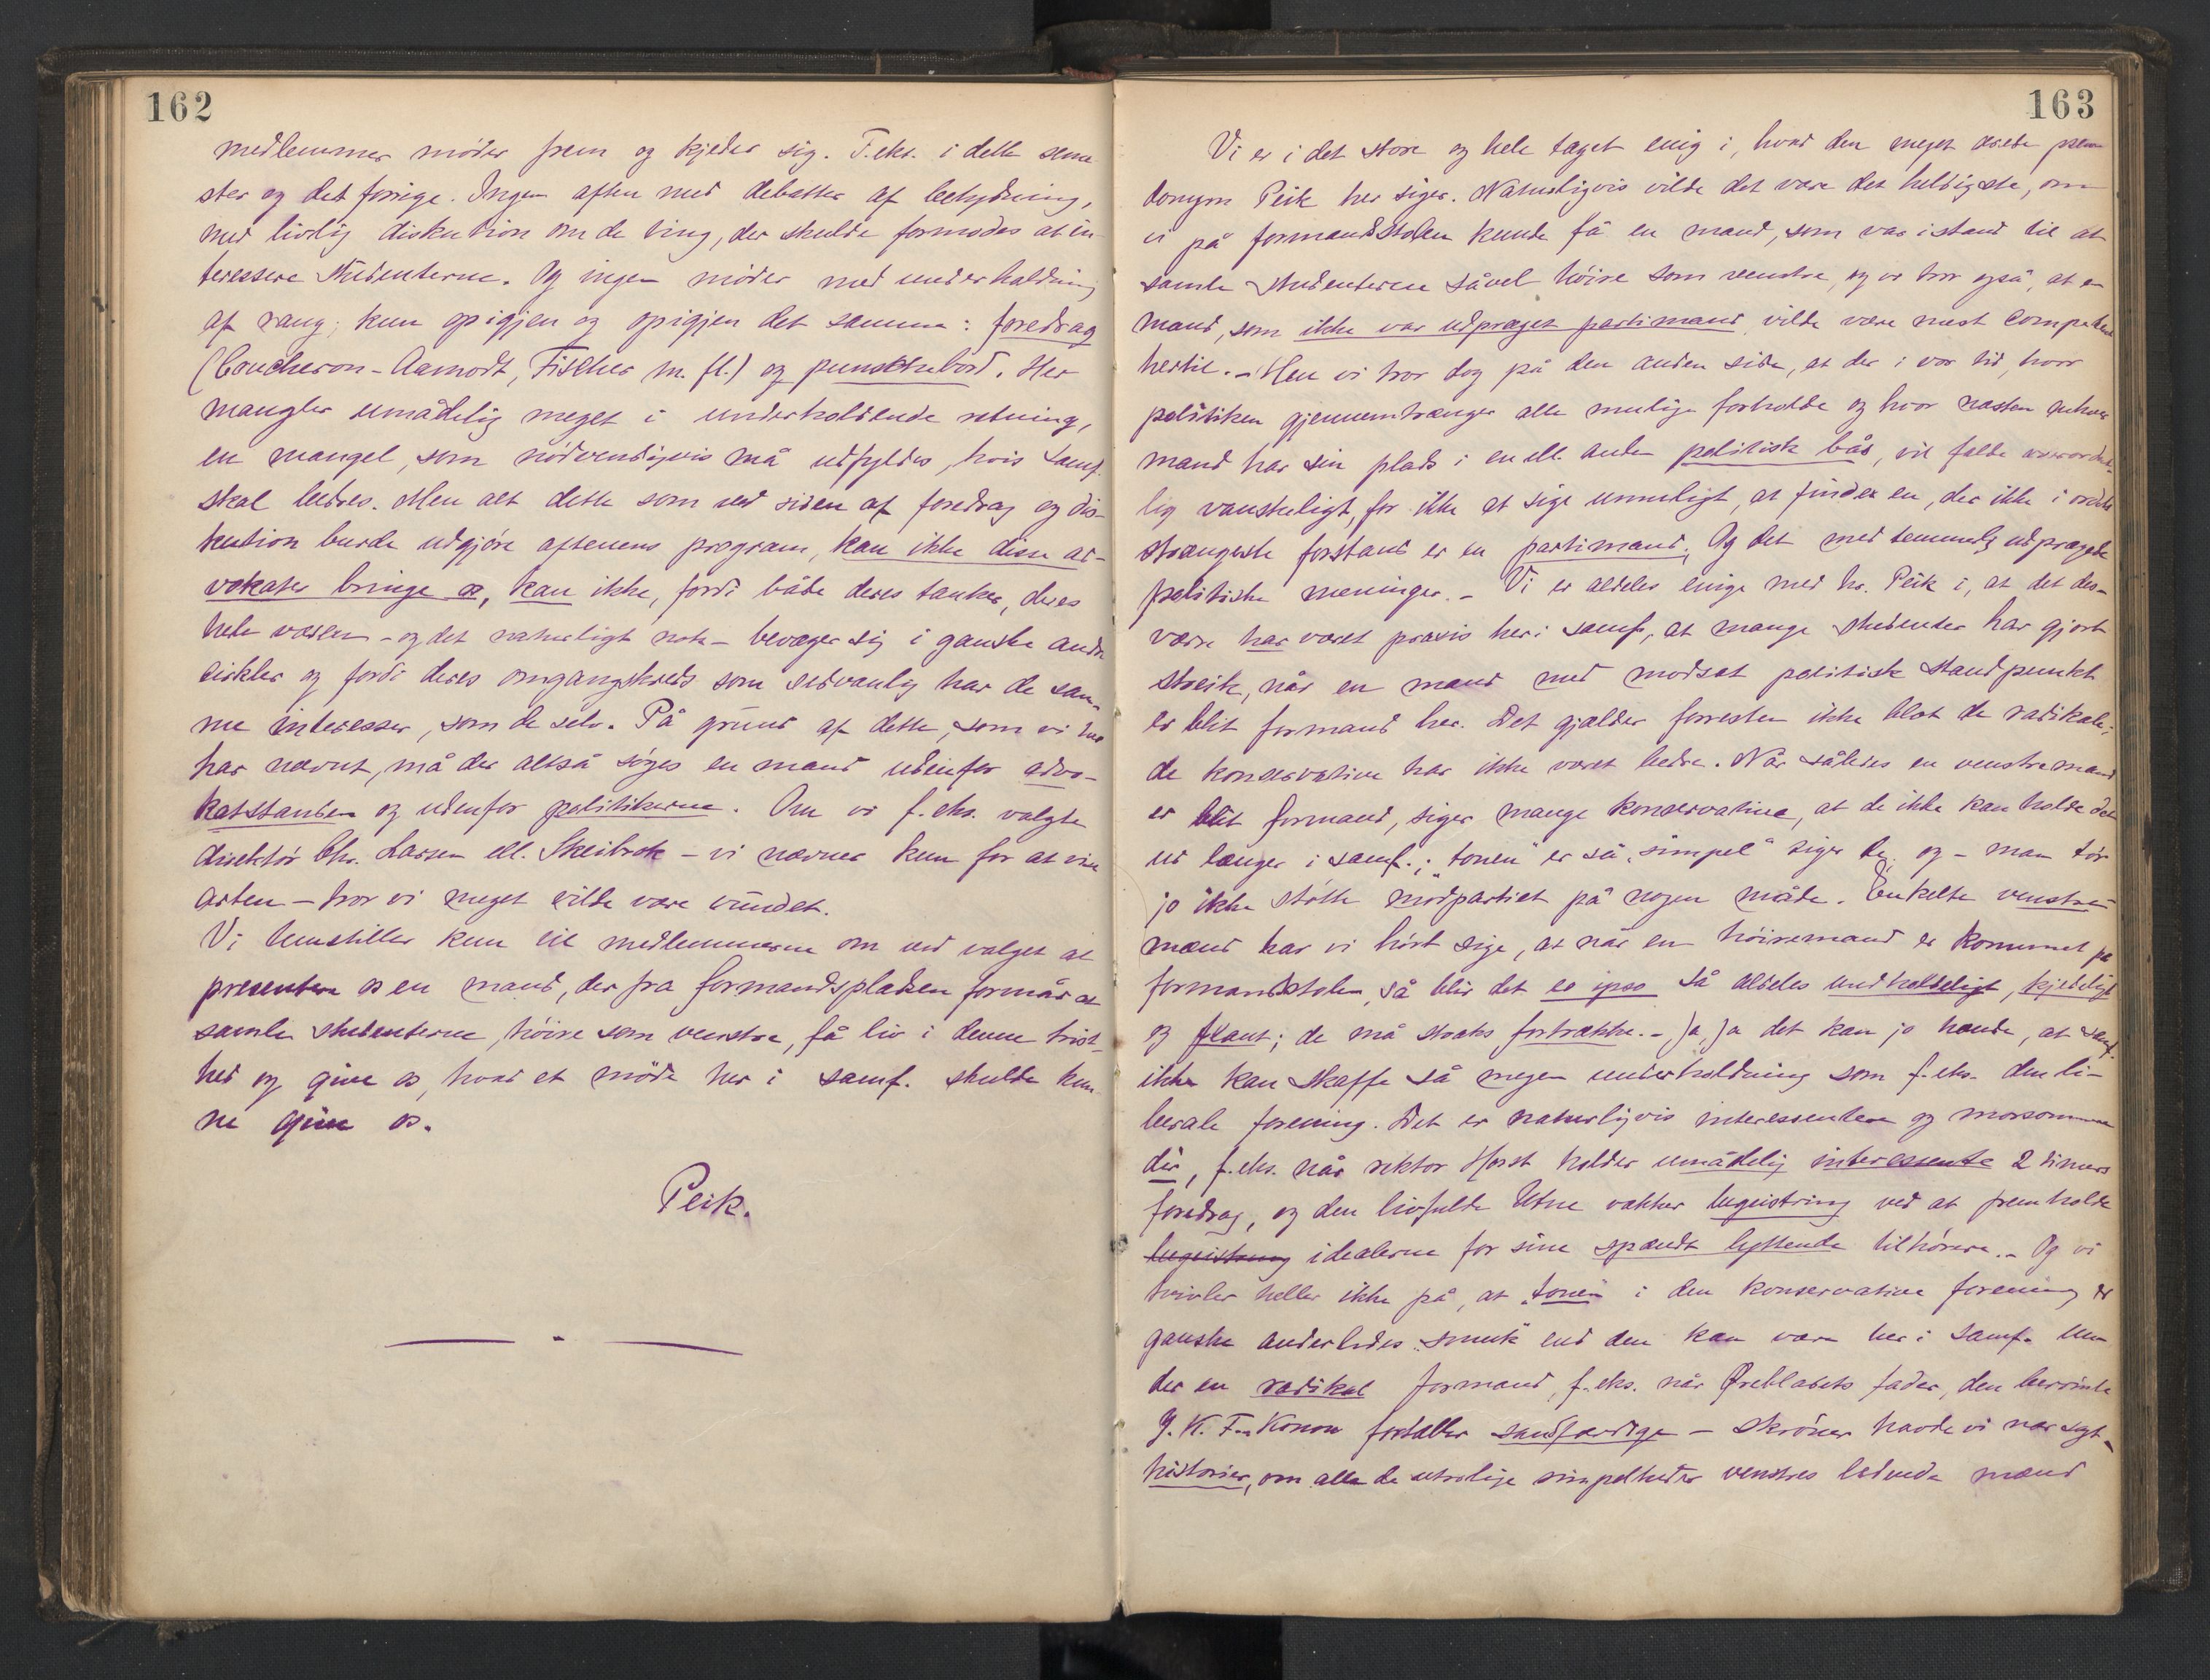 162
medlemmer møder frem og kjeder sig. F. eks. i dette seme
ster og det forrige. Ingen aften med debatter af betydning,
med livlig diskution om de ting, der skulde formodes at in-
teressere studenterne. Og ingen møder med underholdning
af rang; kun opigjen og opigjen det samme: foredrag
(Coucheron-Aamodt, Fischer m. fl.) og punschebord. Her
mangler umådelig meget i underholdende retning,
en mangel, som nødvendigvis må udfyldes, hvis samf.
skal bedres. Men alt dette som ved siden af foredrag og dis-
kution burde udgjøre aftenens program, kan ikke disse ad-
vokater bringe os, kan ikke, fordi både deres tanker, deres
hele væsen - og det naturligt nok - bevæger sig i ganske andre
cirkler og fordi deres omgangskreds som sedvanlig har de sam-
me interesser, som de selv. På grund af dette, som vi her
har nævnt, må der altså søges en mand udenfor advo-
katstanden og udenfor politikerne. Om vi f. eks. valgte
direktør Chr. Larsen ell. Skeibrok - vi nævner kun for at vise
arten - tror vi meget vilde være vundet.
Vi henstiller kun til medlemmerne om ved valget at
presentere os en mand, der fra formandspladsen formår at
samle studenterne, høire som venstre, få liv i denne trist-
hed og give os, hvad et møde her i samf. skulde kun-
ne give os.
Peik.
163
Vi er i det store og hele taget enig i, hvad den meget ærede pseu
donym Peik her siger. Naturligvis vilde det være det heldigste, om
vi på formandsstolen kunde få en mand, som var istand til at
samle studenterne såvel høire som venstre, og vi tror også, at en
mand, som ikke var udpræget partimand vilde være mest competent
hertil. - Men vi tror dog på den anden side, at der i vor tid, hvor
politiken gjennemtrænger alle mulige forholde og hvor næsten enhver
mand har sin plads i en ell. anden politisk bås, vil falde overordent-
lig vanskeligt, for ikke at sige umuligt, at finde en, der ikke i ordets
strængeste forstand er en partimand. Og det med temmelig udprægede
politiske meninger. - Vi er aldeles enige med hr. Peik i, at det des-
værre har været praxis her i samf., at mange studenter har gjort
streik, når en mand med modsat politisk standpunkt
er blit formand her. Det gjælder forresten ikke blot de radikale;
de konservative har ikke været bedre. Når således en venstremand
er blit formand, siger mange konservative, at de ikke kan holde det
ud længer i samf.; „tonen" er så „simpel" siger de; og - man tør
jo ikke støtte modpartiet på nogen måde. Enkelte venstre-
mænd har vi hørt sige, at når en høiremand er kommet på
formandsstolen, så blir det eo ipso så aldeles uudholdeligt, kjedeligt
og flaut; de må straks fortrække. - Ja, ja det kan jo hænde, at samf.
ikke kan skaffe så megen underholdning som f. eks. den li-
berale forening. Det er naturligvis interessentere og morsommere
dér, f. eks. når rektor Horst holder umådelig interessente 2 timers
foredrag, og den livfulde Utne vækker begeistring ved at fremholde
begeistring idealerne for sine spændt lyttende tilhørere. - Og vi
tvivler heller ikke på, at „tonen" i den konservative forening er
ganske anderledes „smuk" end den kan være her i samf. un-
der en radikal formand, f. eks. når Ørebladets fader, den berømte
J. K. F. Konow fortæller sandfærdige - skrøner havde vi nær sagt -
historier, om alle de utrolige simpelheder venstres ledende mænd